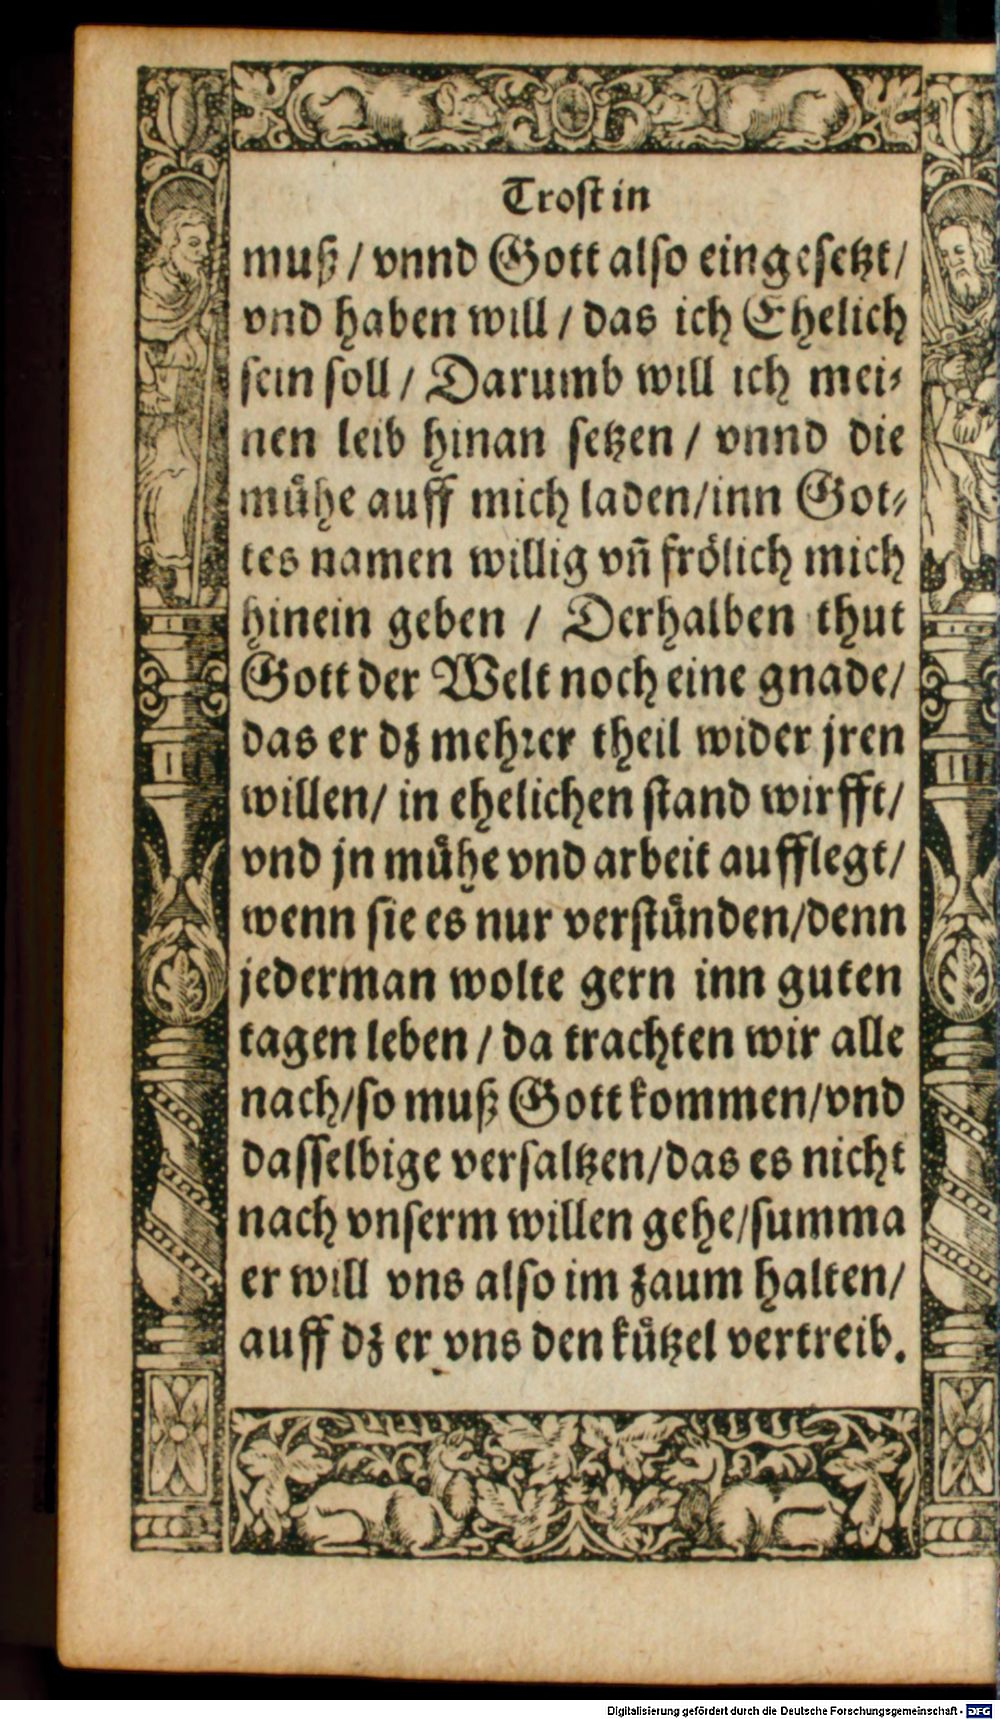 Trost in
muß / vnnd Gott also eingesetzt /
vnd haben will / das ich Ehelich
sein soll / Darumb will ich mei⸗
nen leib hinan setzen / vnnd die
mühe auff mich laden / inn Got⸗
tes namen willig vn̄ frölich mich
hinein geben / Derhalben thut
Gott der Welt noch eine gnade /
das er dz mehrer theil wider jren
willen / in ehelichen stand wirfft /
vnd jn mühe vnd arbeit aufflegt /
wenn sie es nur verstünden / denn
jederman wolte gern inn guten
tagen leben / da trachten wir alle
nach / so muß Gott kommen / vnd
dasselbige versaltzen / das es nicht
nach vnserm willen gehe / summa
er will vns also im zaum halten /
auff dz er vns den kützel vertreib.
Digitalisierung gefördert durch die Deutsche Forschungsgemeinschaft - DFG